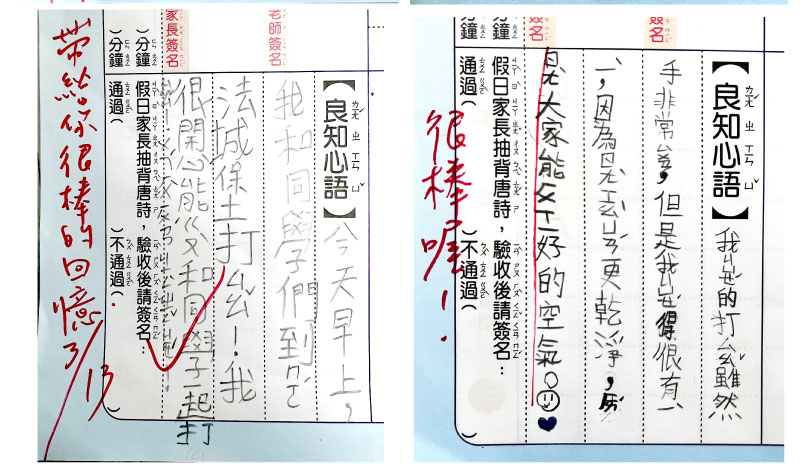 【良知心語】今天早上，
我和同學們到
法城保土打ㄙㄠˇ！我
很開心能ㄍㄡ和同學一起打
老師簽名
家長簽名
)分鐘 )分鐘
假日家長抽背唐詩，驗收後請簽名：
通過( )不通過( )
帶給你很棒的回憶 3/13
【良知心語】我的打ㄙㄠˇ雖然
手非常，但是我得很有
，因為更乾淨，
大家能ㄒㄧ好的空氣。
簽名
簽名
)分鐘
假日家長抽背唐詩，驗收後請簽名：
通過( )不通過( )
很棒喔！